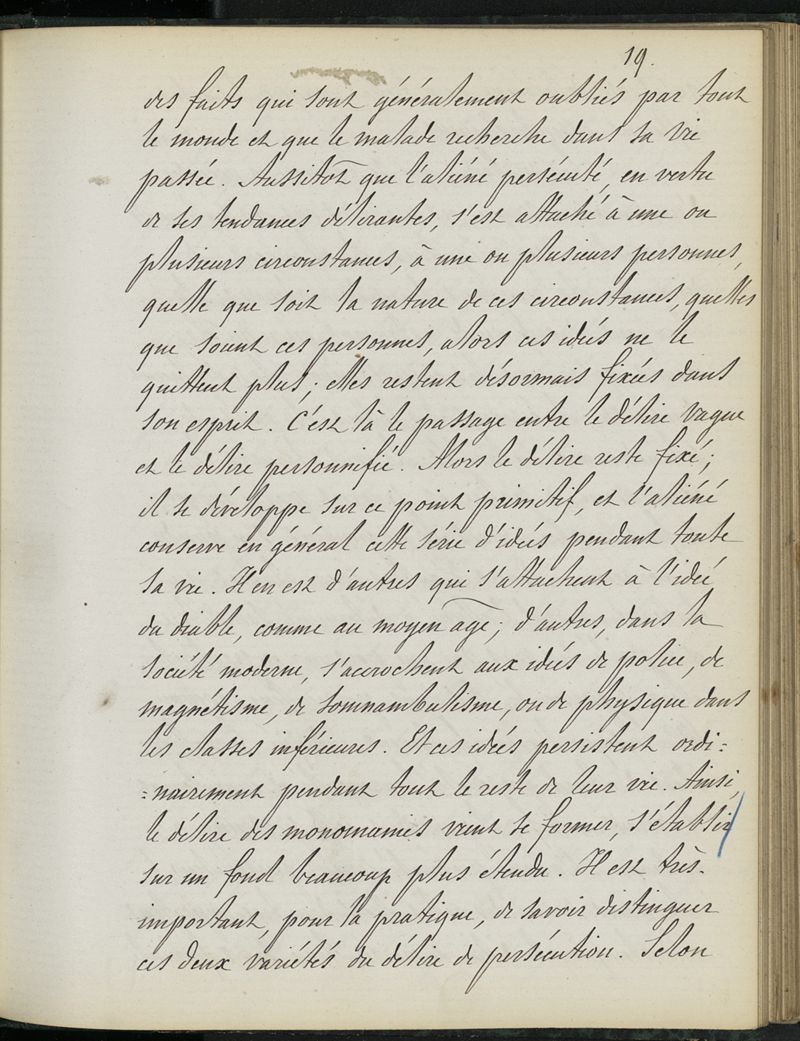 19.
des faits qui sont généralement oubliés par tout
le monde et que le malade recherche dans sa vie
passée. Aussitôt que l'aliéné persécuté, en vertu
de ses tendances délirantes, s'est attaché à une ou
plusieurs circonstances, à une ou plusieurs personnes,
quelle que soit la nature de ces circonstances, quelles
que soient ces personnes, alors ces idées ne le
quittent plus; elles restent désormais fixées dans
son esprit. C'est là le passage entre le délire vague
et le délire personnifié. Alors le délire reste fixé;
il se développe sur ce point primitif, et l'aliéné
conserve en général cette série d'idées pendant toute
sa vie. Il en est d'autres qui s'attachent à l'idée
du diable, comme au moyen âge; d'autres, dans la
société moderne, s'accrochent aux idées de police, de
magnétisme, de somnambulisme, ou de physique dans
les classes inférieures. Et ces idées persistent ordi=
=nairement pendant tout le reste de leur vie. Ainsi,
le délire des monomanies vient se former, s'établir
sur un fond beaucoup plus étendu. Il est très-
important, pour la pratique, de savoir distinguer
ces deux variétés du délire de persécution. Selon